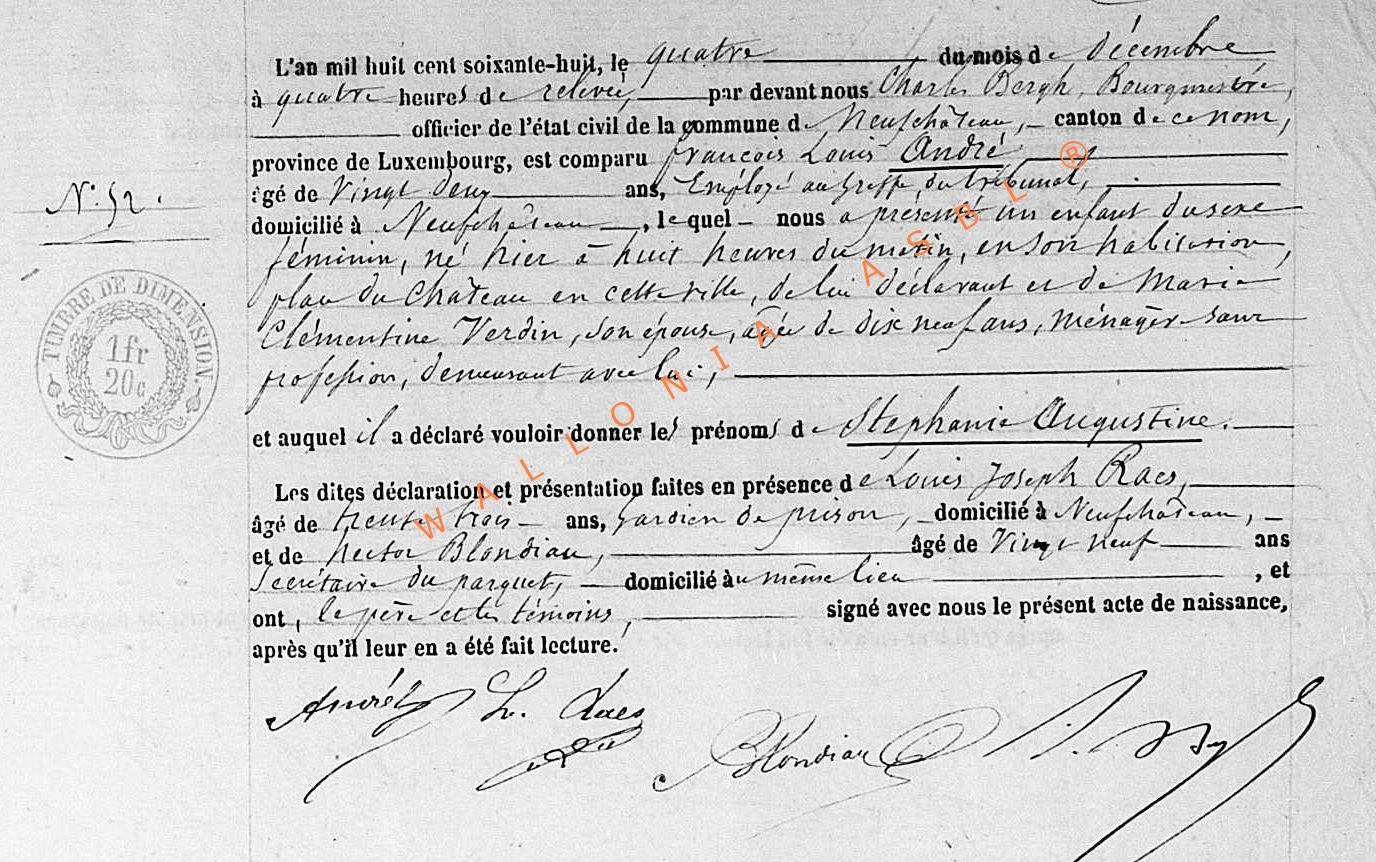 L'an mil huit cent soixante-huit, le quatre du mois de décembre
à quatre heures de relevée, par devant nous Charles Bergh, Bourgmestre,
officier de l'état civil de la commune de Neufchâteau, canton de ce nom,
province de Luxembourg, est comparu françois Louis André
âgé de Vingt deux ans, Employé au Greffe du tribunal,
N° 52.
domicilié à Neufchâteau, lequel nous a présenté un enfant du sexe
féminin, né hier à huit heures du matin, en son habitation,
place du Château en cette ville, de lui déclarant et de Marie
Clémentine Verdin, son épouse, âgée de dix neuf ans, ménagère sans
profession, demeurant avec lui,
TIMBRE DE DIMENSION.
1fr
20c
et auquel il a déclaré vouloir donner les prénoms de Stephanie Augustine.
Les dites déclaration et présentation faites en présence de Louis Joseph Raes,
âgé de trente trois ans, Gardien de prison, domicilié à Neufchâteau,
et de hector Blondiau, âgé de Vingt neuf ans
Secrétaire du parquet, domicilié au même lieu, et
ont, le père et les témoins, signé avec nous le présent acte de naissance,
après qu'il leur en a été fait lecture.
André L. Raes
Blondiau
WALLONIA ASBL ®